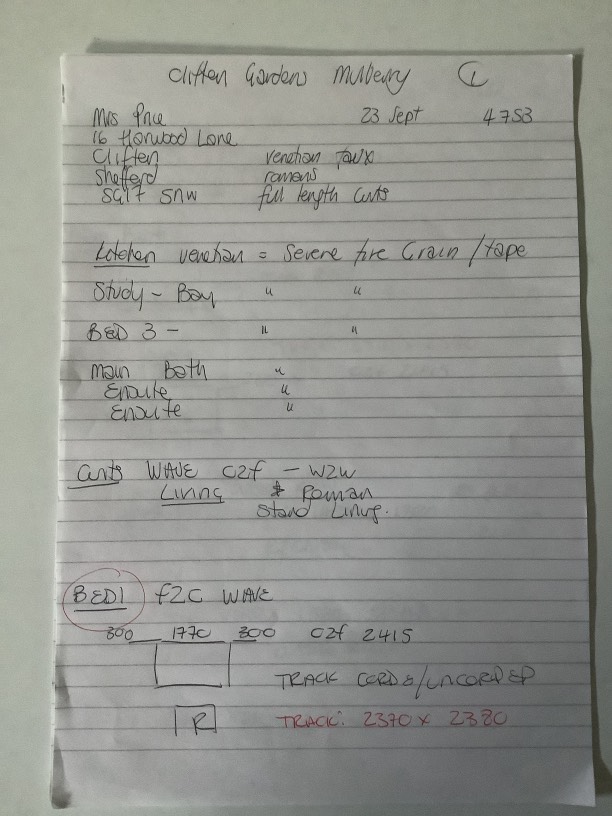 Cliften Gardens Mulberry 1
Mrs Price 23 Sept 4753
16 Horwood Lane
Cliften venetian faux
Shefferd romans
SG17 5NW full length curts
Kitchen venetian = Severe fire Grain / tape
Study - Bay " "
BED 3 - " "
Main Bath "
Ensuite "
Ensuite "
Curts WAVE C2f - W2W
Living & Roman
Stand Lining.
BED1 f2C WAVE
300 1770 300 C2f 2415
TRACK CORDE/UNCORDED
R TRACK: 2370 x 2380